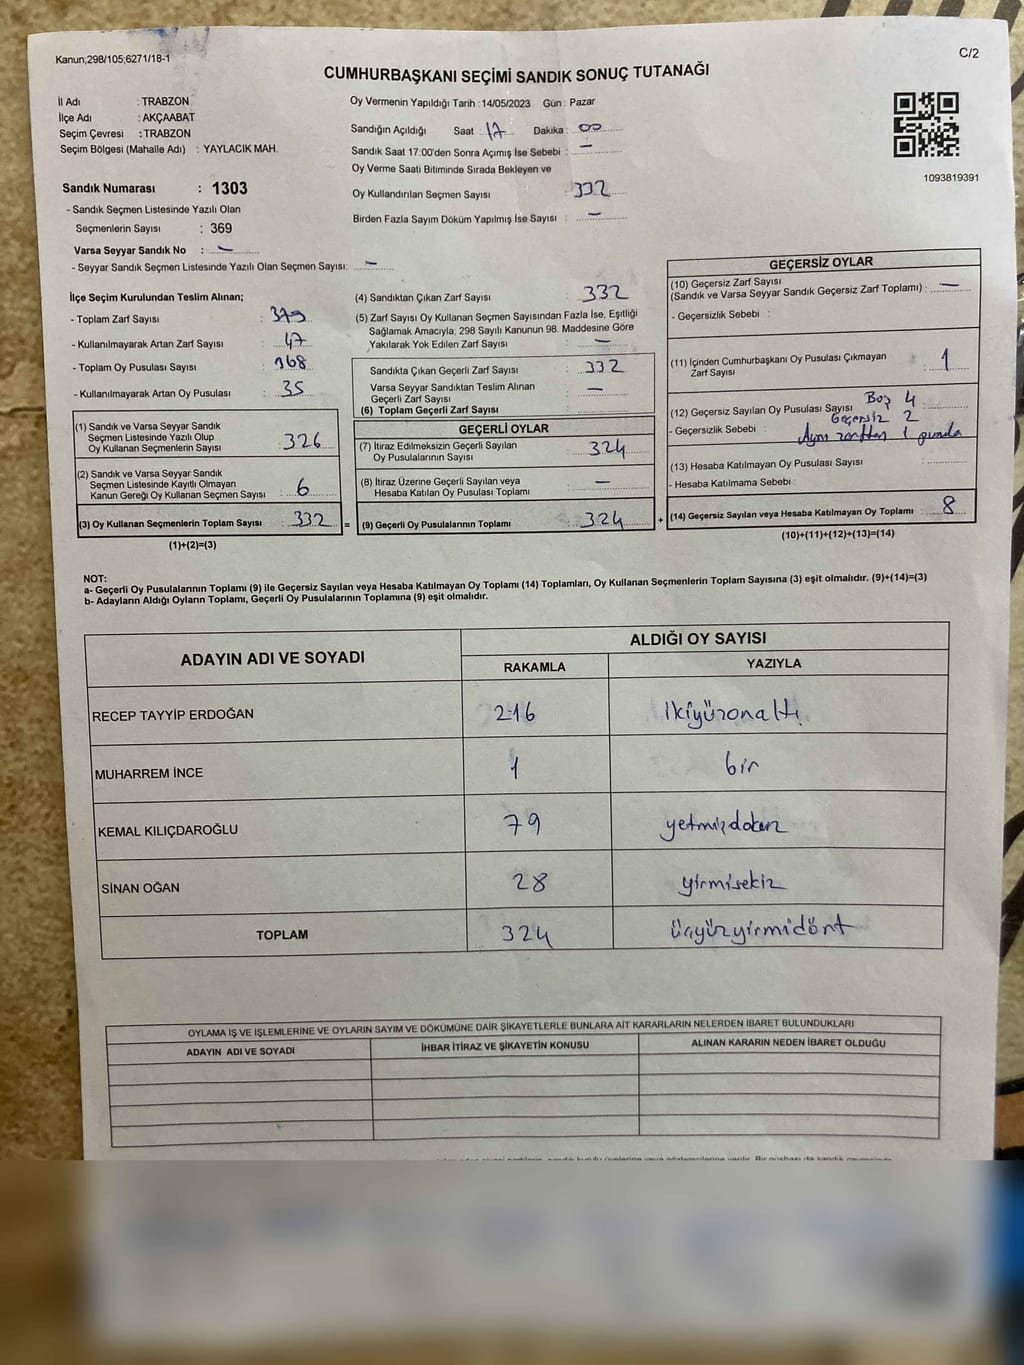 Kanun;298/105;6271/18-1
C/2
CUMHURBAŞKANI SEÇİMİ SANDIK SONUÇ TUTANAĞI
İl Adı : TRABZON
İlçe Adı : AKÇAABAT
Seçim Çevresi : TRABZON
Seçim Bölgesi (Mahalle Adı) : YAYLACIK MAH.
Sandık Numarası : 1303
- Sandık Seçmen Listesinde Yazılı Olan
Seçmenlerin Sayısı : 369
Varsa Seyyar Sandık No : —
- Seyyar Sandık Seçmen Listesinde Yazılı Olan Seçmen Sayısı: —
Oy Vermenin Yapıldığı Tarih : 14/05/2023 Gün : Pazar
Sandığın Açıldığı Saat : 17 Dakika : 00
Sandık Saat 17:00'den Sonra Açımış İse Sebebi : —
Oy Verme Saati Bitiminde Sırada Bekleyen ve
Oy Kullandırılan Seçmen Sayısı : 332
Birden Fazla Sayım Döküm Yapılmış İse Sayısı : —
1093819391
İlçe Seçim Kurulundan Teslim Alınan;
- Toplam Zarf Sayısı : 379
- Kullanılmayarak Artan Zarf Sayısı : 47
- Toplam Oy Pusulası Sayısı : 368
- Kullanılmayarak Artan Oy Pusulası : 35
(1) Sandık ve Varsa Seyyar Sandık
Seçmen Listesinde Yazılı Olup
Oy Kullanan Seçmenlerin Sayısı : 326
(2) Sandık ve Varsa Seyyar Sandık
Seçmen Listesinde Kayıtlı Olmayan
Kanun Gereği Oy Kullanan Seçmen Sayısı : 6
(3) Oy Kullanan Seçmenlerin Toplam Sayısı : 332 =
(1)+(2)=(3)
(4) Sandıktan Çıkan Zarf Sayısı : 332
(5) Zarf Sayısı Oy Kullanan Seçmen Sayısından Fazla İse, Eşitliği
Sağlamak Amacıyla; 298 Sayılı Kanunun 98. Maddesine Göre
Yakılarak Yok Edilen Zarf Sayısı : —
Sandıkta Çıkan Geçerli Zarf Sayısı : 332
Varsa Seyyar Sandıktan Teslim Alınan
Geçerli Zarf Sayısı : —
(6) Toplam Geçerli Zarf Sayısı :
GEÇERLİ OYLAR
(7) İtiraz Edilmeksizin Geçerli Sayılan
Oy Pusulalarının Sayısı : 324
(8) İtiraz Üzerine Geçerli Sayılan veya
Hesaba Katılan Oy Pusulası Toplamı : —
(9) Geçerli Oy Pusulalarının Toplamı : 324 +
GEÇERSİZ OYLAR
(10) Geçersiz Zarf Sayısı
(Sandık ve Varsa Seyyar Sandık Geçersiz Zarf Toplamı) : —
- Geçersizlik Sebebi :
(11) İçinden Cumhurbaşkanı Oy Pusulası Çıkmayan
Zarf Sayısı : 1
(12) Geçersiz Sayılan Oy Pusulası Sayısı : Boş 4
Geçersiz 2
- Geçersizlik Sebebi : Aynı zarftan 1 pusula
(13) Hesaba Katılmayan Oy Pusulası Sayısı :
- Hesaba Katılmama Sebebi :
(14) Geçersiz Sayılan veya Hesaba Katılmayan Oy Toplamı : 8
(10)+(11)+(12)+(13)=(14)
NOT:
a- Geçerli Oy Pusulalarının Toplamı (9) ile Geçersiz Sayılan veya Hesaba Katılmayan Oy Toplamı (14) Toplamları, Oy Kullanan Seçmenlerin Toplam Sayısına (3) eşit olmalıdır. (9)+(14)=(3)
b- Adayların Aldığı Oyların Toplamı, Geçerli Oy Pusulalarının Toplamına (9) eşit olmalıdır.
ADAYIN ADI VE SOYADI
ALDIĞI OY SAYISI
RAKAMLA YAZIYLA
RECEP TAYYİP ERDOĞAN 216 ikiyüzonaltı
MUHARREM İNCE 1 bir
KEMAL KILIÇDAROĞLU 79 yetmişdokuz
SİNAN OĞAN 28 yirmisekiz
TOPLAM 324 üçyüzyirmidört
OYLAMA İŞ VE İŞLEMLERİNE VE OYLARIN SAYIM VE DÖKÜMÜNE DAİR ŞİKAYETLERLE BUNLARA AİT KARARLARIN NELERDEN İBARET BULUNDUKLARI
ADAYIN ADI VE SOYADI İHBAR İTİRAZ VE ŞİKAYETİN KONUSU ALINAN KARARIN NEDEN İBARET OLDUĞU